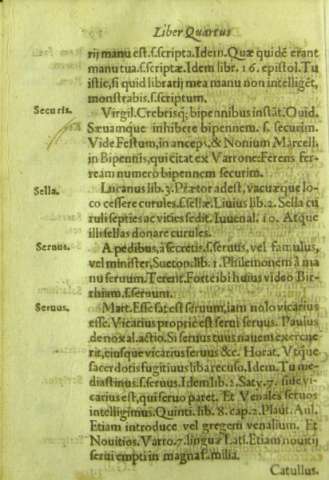 Liber Quartus
rij manu est. s. scripta. Idem. Quæ quidẽ erant
manu tua. s. scriptæ. Idem libr. 16. epistol. Tu
istic, si quid librarij mea manu non intelligẽt,
monstrabis. s. scriptum.
Securis. Virgil. Crebrisq; bipennibus instãt. Ouid.
Sæuamque inhibere bipennem. s. securim.
Vide Festum, in ancepš, & Nonium Marcell.
in Bipennis, qui citat ex Varrone: Ferens fer-
ream numero bipennem securim.
Sella. Lucanus lib. 3. Prætor adest, vacuæque lo-
co cessere curules. s. sellæ. Liuius lib. 2. Sella cu
ruli septies ac vities sedit. Iuuenal. 10. Atque
illi sellas donare curules.
Seruus. A pedibus, a secretis. s. seruus, vel famulus,
vel minister, Sueton. lib. 1. Philemonem à ma
nu seruum. Terent. Forte ibi huius video Bir-
rhium. s. seruum.
Seruus. Mart. Esse sat est seruum, iam nolo vicarius
esse. Vicarius propriè est serui seruus. Paulus
de noxal. actio. Si seruus tuus nauem exercue-
rit, eiusque vicarius seruus &c. Horat. Vtque
sacerdotis fugitiuus liba recuso. Idem. Tu me-
diastinus. s. seruus. Idem lib. 2. Saty. 7. siue vi-
carius est, qui seruo paret. Et Venales seruos
intelligimus. Quinti. lib. 8. cap. 2. Plaut. Aul.
Etiam introduce vel gregem venalium. Et
Nouitios. Varro. 7. linguæ Lat. Etiam nouitij
serui empti in magna familia.
Catullus.